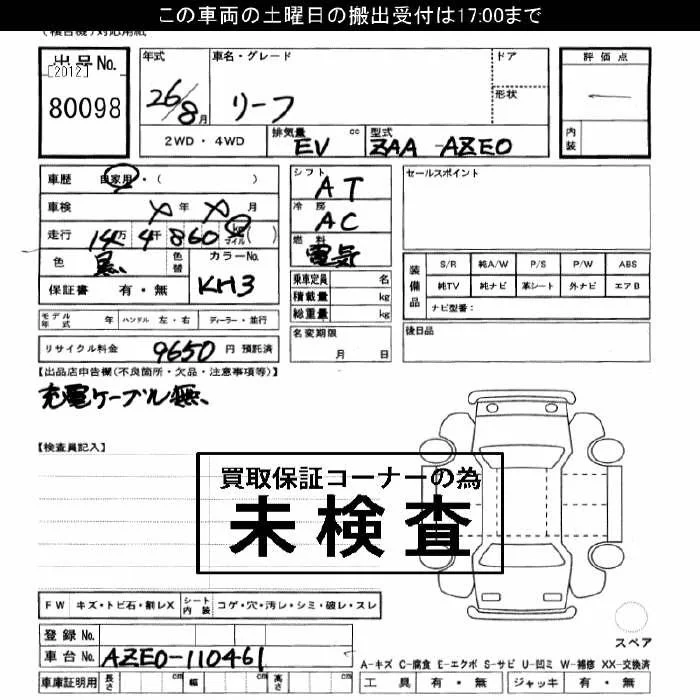 この車両の土曜日の搬出受付は17:00まで
出品No. [2012] 80098
年式 26/8月
車名・グレード リーフ
ドア
形状
評価点 ー
内装
2WD・4WD 排気量 EV cc 型式 ZAA-AZE0
車歴 自家用・( )
車検 年 月
走行 14万 4千 860 km マイル ( )
色 黒 色替 カラーNo. KH3
保証書 有・無
モデル年式 年 ハンドル 左・右 ディーラー・並行
リサイクル料金 9650 円 預託済
シフト AT
冷房 AC
燃料 電気
乗車定員 名
積載量 kg
総重量 kg
名変期限 月 日
セールスポイント
装備品 S/R 純A/W P/S P/W ABS
純TV 純ナビ 革シート 外ナビ エアB
ナビ型番:
後日品
【出品店申告欄(不良箇所・欠品・注意事項等)】
充電ケーブル無、
【検査員記入】
買取保証コーナーの為
未検査
FW キズ・トビ石・割レX シート内装 コゲ・穴・汚レ・シミ・破レ・スレ
登録No.
車台No. AZE0-110461
車庫証明用 長さ cm 幅 cm 高さ cm
スペア
A-キズ C-腐食 E-エクボ S-サビ U-凹ミ W-補修 XX-交換済
工具 有・無 ジャッキ 有・無